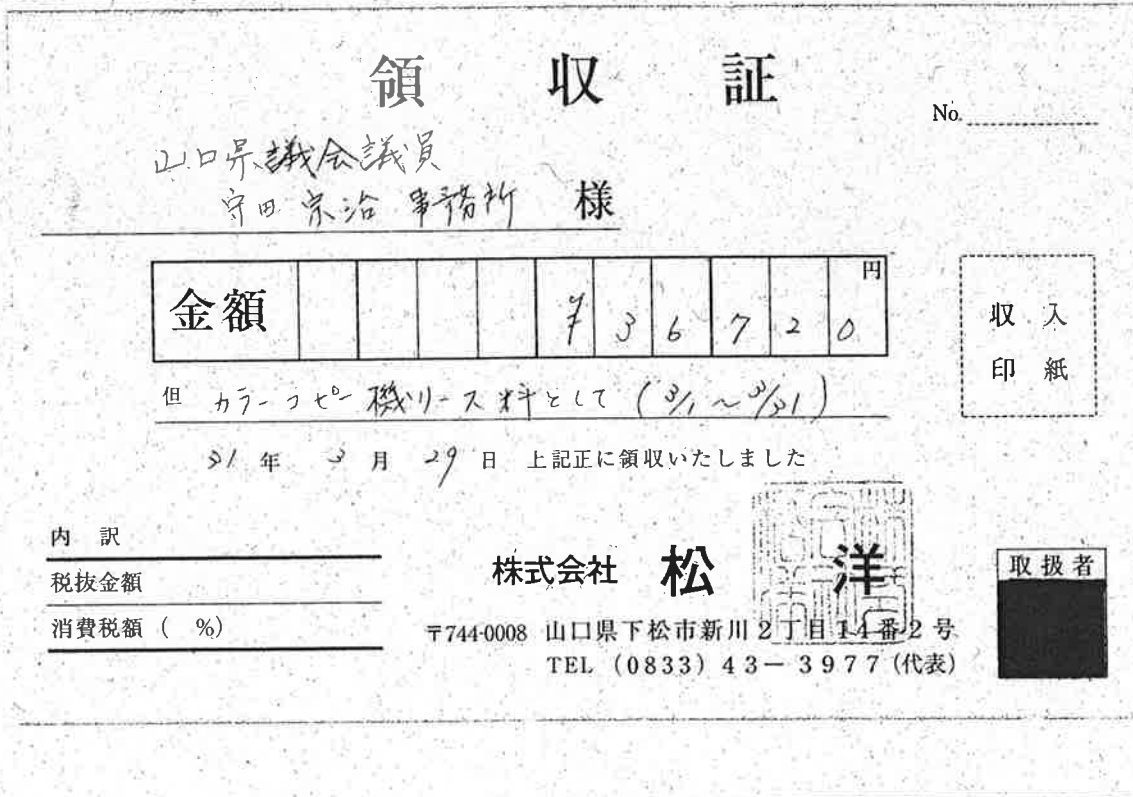 領収証
No.
山口県議会議員
守田宗治事務所 様
金額 ¥36720円
収入
印紙
但 カラーコピー機リース料として (3/1～3/31)
31年3月29日 上記正に領収いたしました
内訳
税抜金額
消費税額( %)
株式会社 松洋
〒744-0008 山口県下松市新川2丁目14番2号
TEL (0833) 43-3977(代表)
取扱者